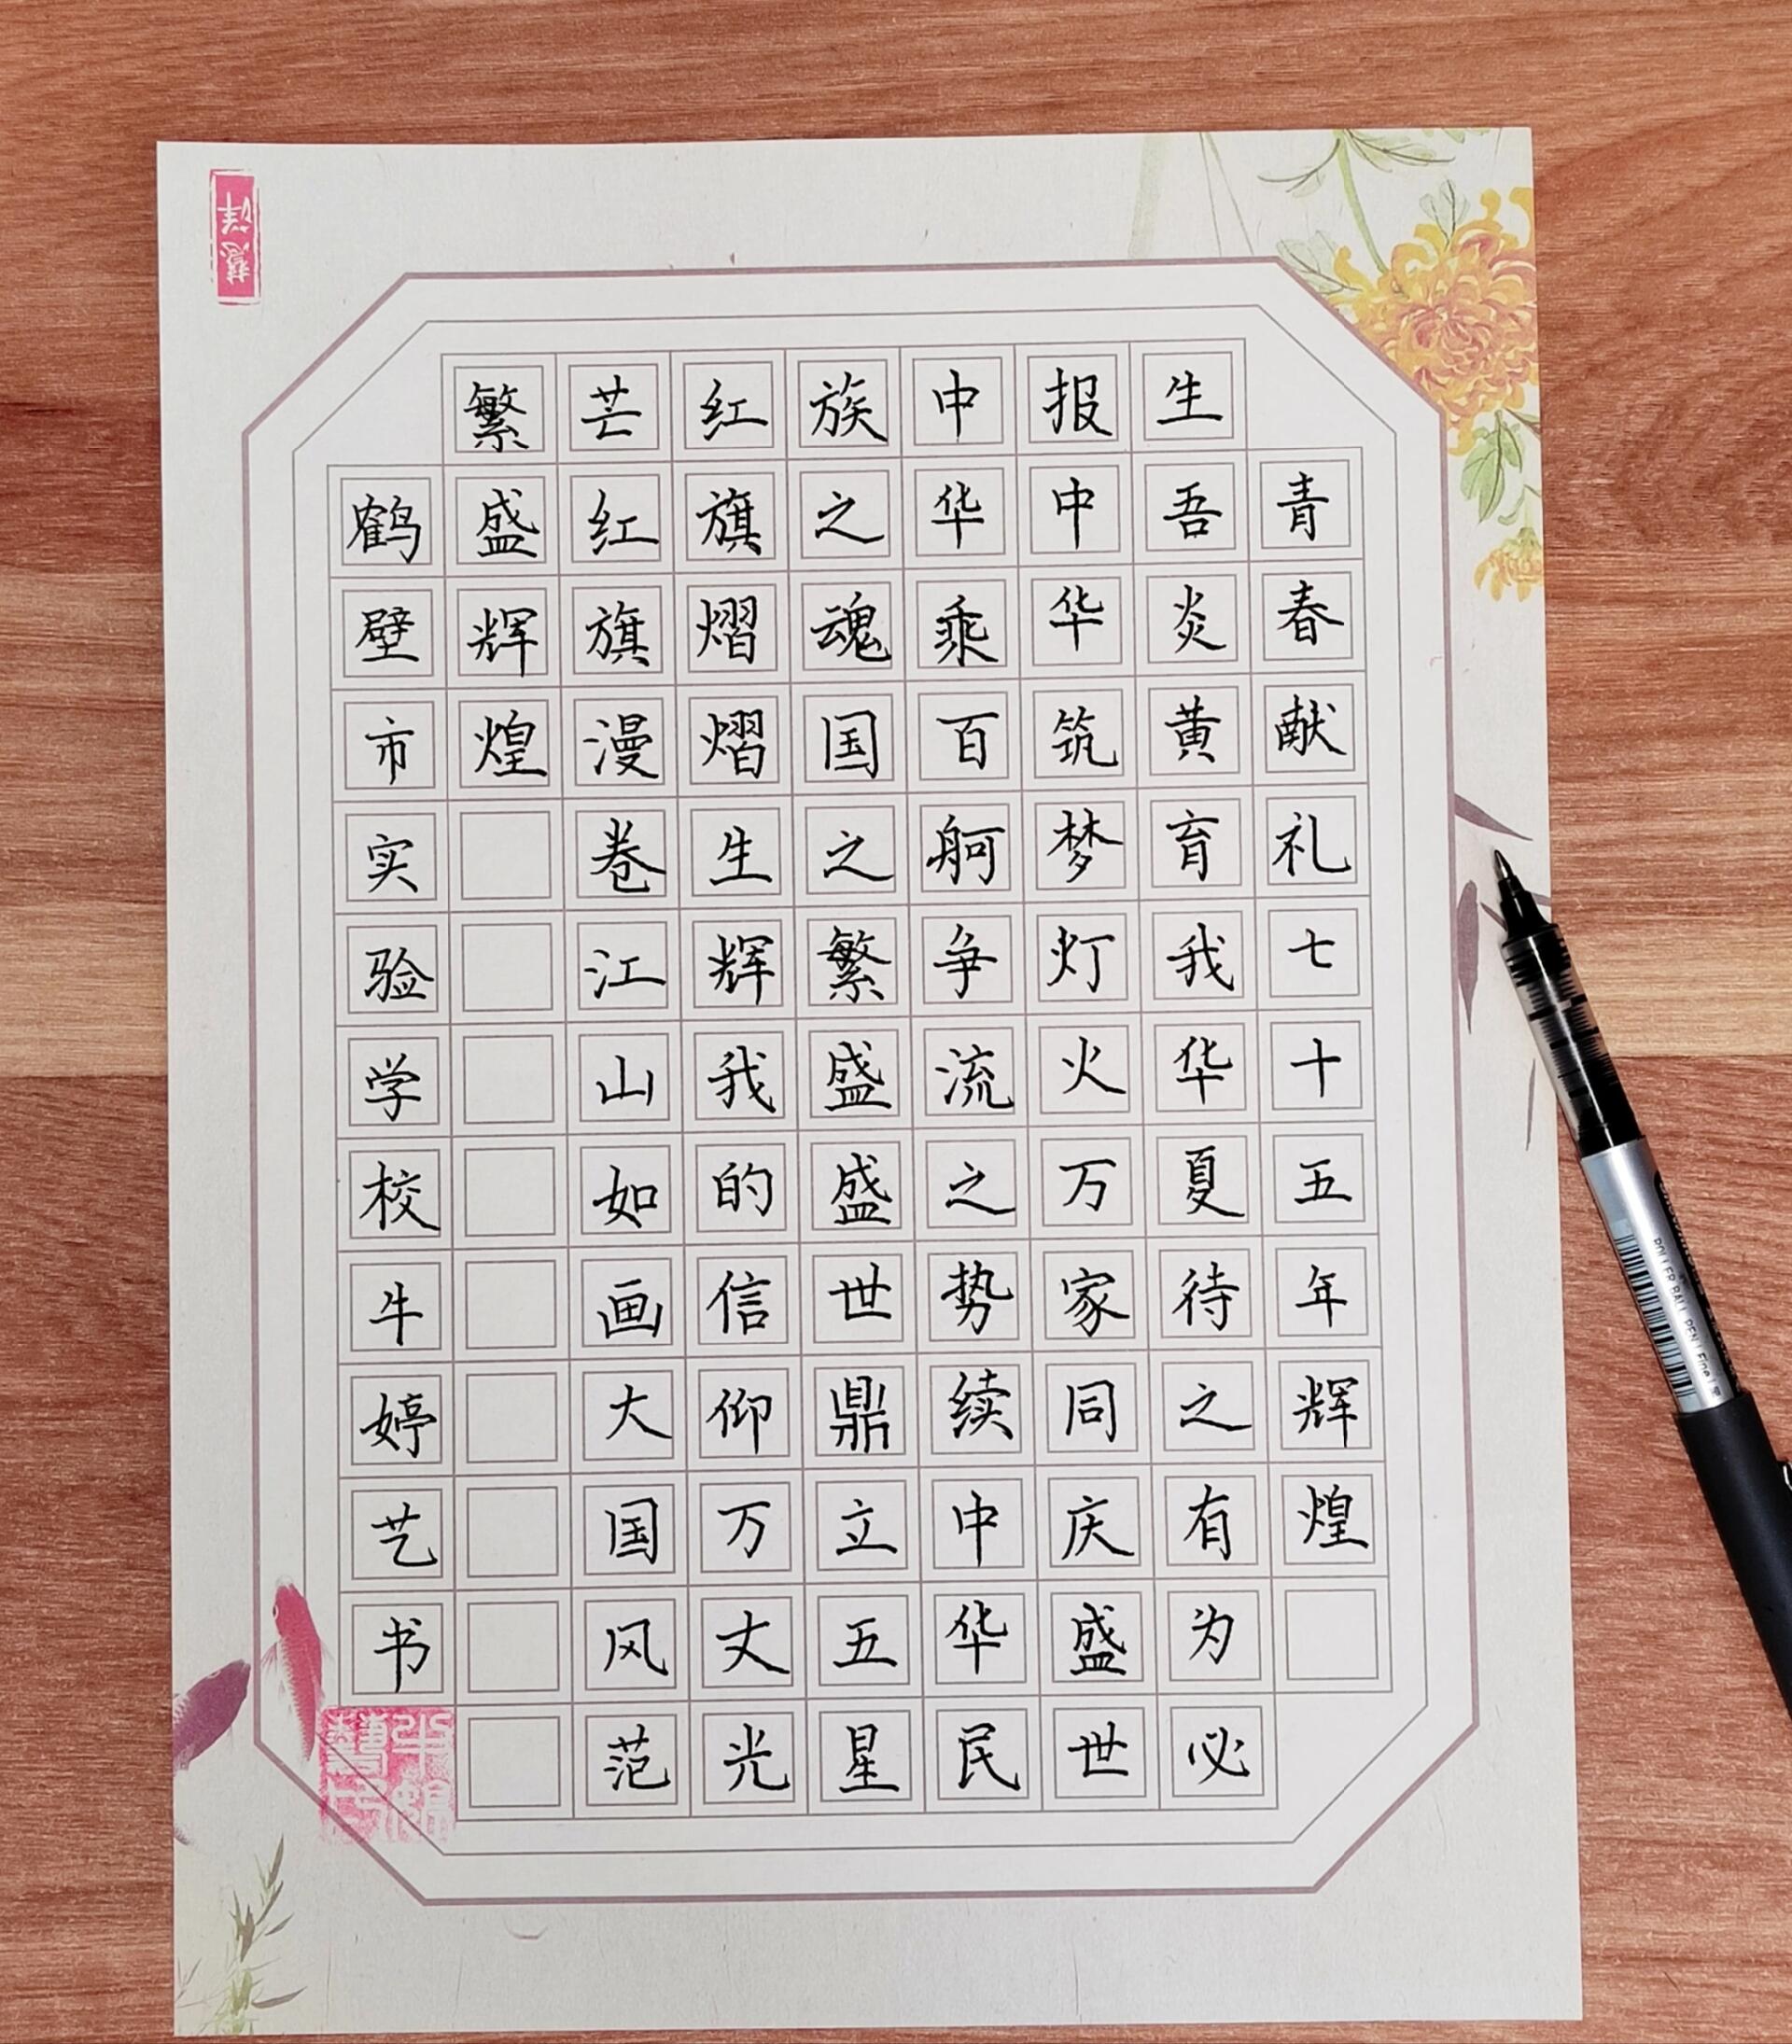 青春献礼七十五年辉煌
生吾炎黄育我华夏待之有为必
报中华筑梦灯火万家同庆盛世
中华乘百舸争流之势续中华民
族之魂国之繁盛盛世鼎立五星
红旗熠熠生辉我的信仰万丈光
芒红旗漫卷江山如画大国风范
繁盛辉煌
鹤壁市实验学校牛婷艺书
牛婷藝印
ROLLER BALL PEN